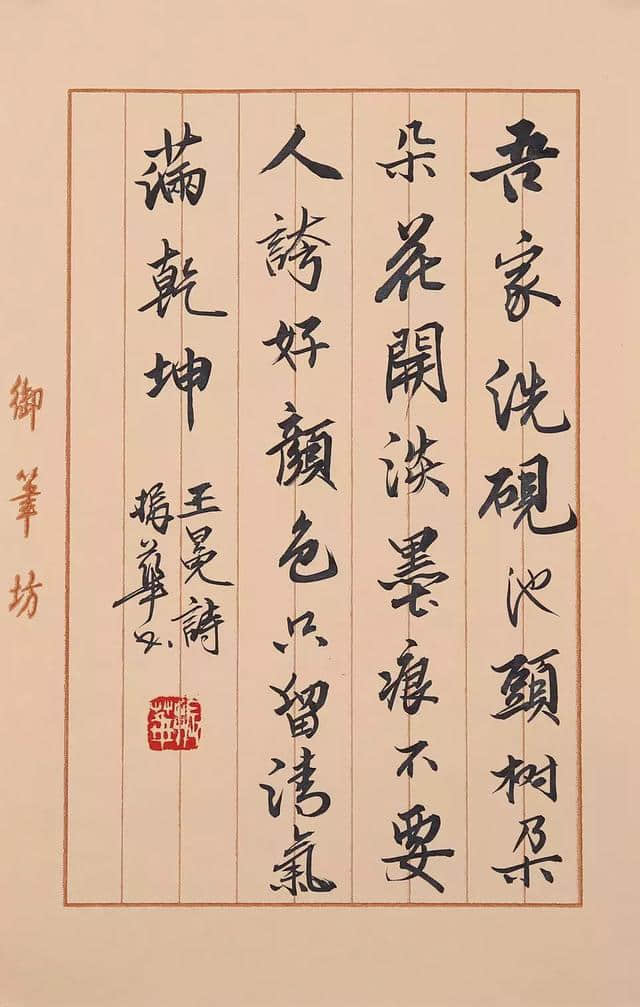 吾家洗硯池頭树朶
朵花開淡墨痕不要
人誇好顏色只留清氣
滿乾坤
王冕詩
華书
御筆坊